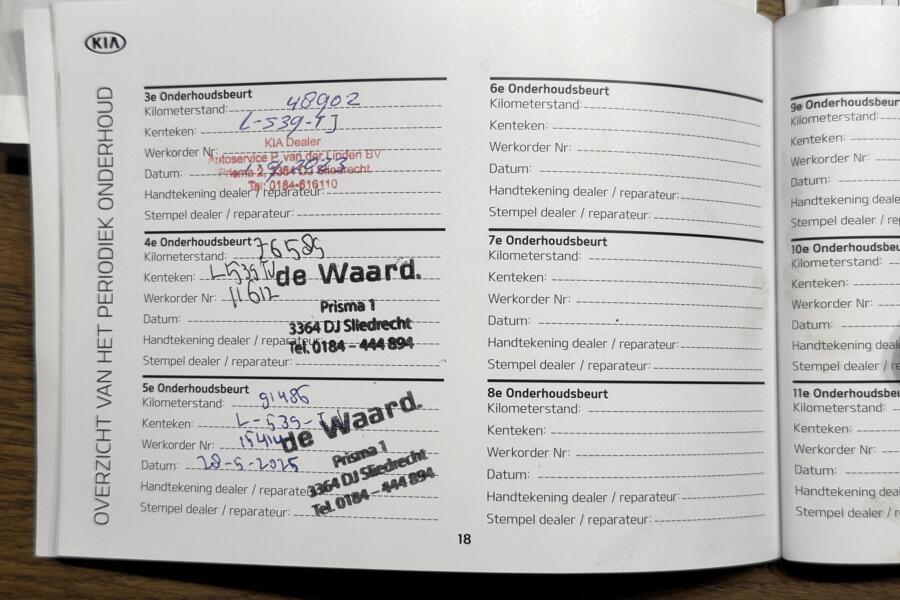 KIA
OVERZICHT VAN HET PERIODIEK ONDERHOUD
3e Onderhoudsbeurt
Kilometerstand: 48902
Kenteken: L-539-TJ
Werkorder Nr:
KIA Dealer
Autoservice P. van der Linden BV
Datum: 2023
Prisma 2, 3364 DJ Sliedrecht
Handtekening dealer / reparateur:
Tel: 0184-616110
Stempel dealer / reparateur:
4e Onderhoudsbeurt
Kilometerstand: 76589
Kenteken: L539
Werkorder Nr: 11612
Datum:
Handtekening dealer / reparateur:
Stempel dealer / reparateur:
de Waard.
Prisma 1
3364 DJ Sliedrecht
Tel. 0184 - 444 894
5e Onderhoudsbeurt
Kilometerstand: 91486
Kenteken: L-539-
Werkorder Nr: 15414
Datum: 28-5-2025
Handtekening dealer / reparateur:
Stempel dealer / reparateur:
de Waard.
Prisma 1
3364 DJ Sliedrecht
Tel. 0184 - 444 894
6e Onderhoudsbeurt
Kilometerstand:
Kenteken:
Werkorder Nr:
Datum:
Handtekening dealer / reparateur:
Stempel dealer / reparateur:
7e Onderhoudsbeurt
Kilometerstand:
Kenteken:
Werkorder Nr:
Datum:
Handtekening dealer / reparateur:
Stempel dealer / reparateur:
8e Onderhoudsbeurt
Kilometerstand:
Kenteken:
Werkorder Nr:
Datum:
Handtekening dealer / reparateur:
Stempel dealer / reparateur:
18
9e Onderhoudsbeur
Kilometerstand:
Kenteken:
Werkorder Nr:
Datum:
Handtekening deale
Stempel dealer / rep
10e Onderhoudsbeu
Kilometerstand:
Kenteken:
Werkorder Nr:
Datum:
Handtekening deal
Stempel dealer / re
11e Onderhoudsbeu
Kilometerstand:
Kenteken:
Werkorder Nr:
Datum:
Handtekening deal
Stempel dealer / re